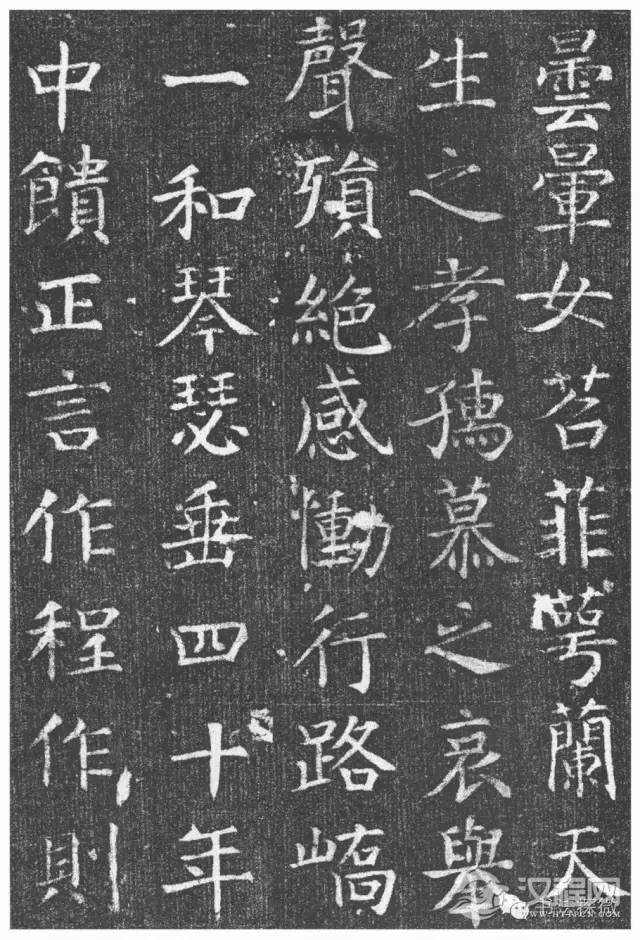 曇暈女苕菲萼蘭天
生之孝孺慕之哀舉
聲殞絕感慟行路嶠
一和琴瑟垂四十年
中饋正言作程作則
汉程网
WWW.HTTPCN.COM